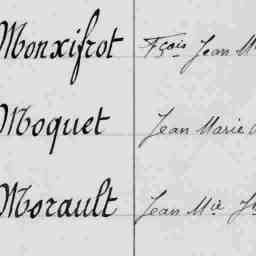 Monxifrot Fçois Jean M
Moquet Jean Marie
Morault Jean Mie